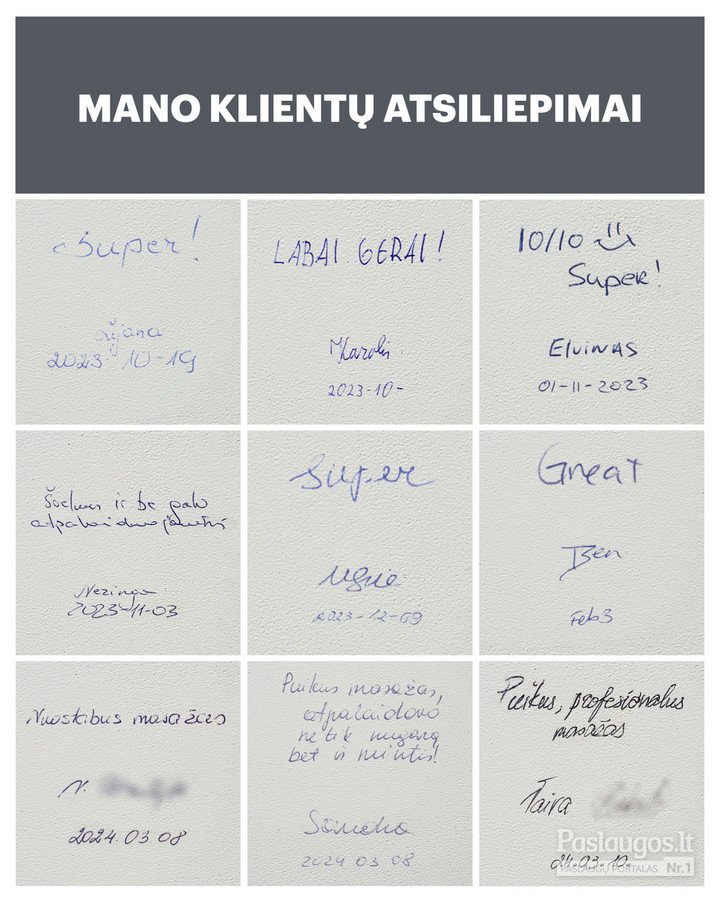 MANO KLIENTŲ ATSILIEPIMAI
Super!
Lijana
2023-10-19
LABAI GERAI!
Karolis
2023-10-
10/10
Super!
Elvinas
01-11-2023
Švelnus ir be galo
atpalaiduojantis
Neringa
2023-11-03
Super
Ugnė
2023-12-09
Great
Ben
Feb3
Nuostabus masažas
N.
2024.03 08
Puikus masažas,
atpalaidavo
ne tik nugarą
bet ir mintis!
2024 03 08
Puikus, profesionalus
masažas
Taira
24.03.10.
Paslaugos.lt
PASLAUGŲ PORTALAS Nr.1